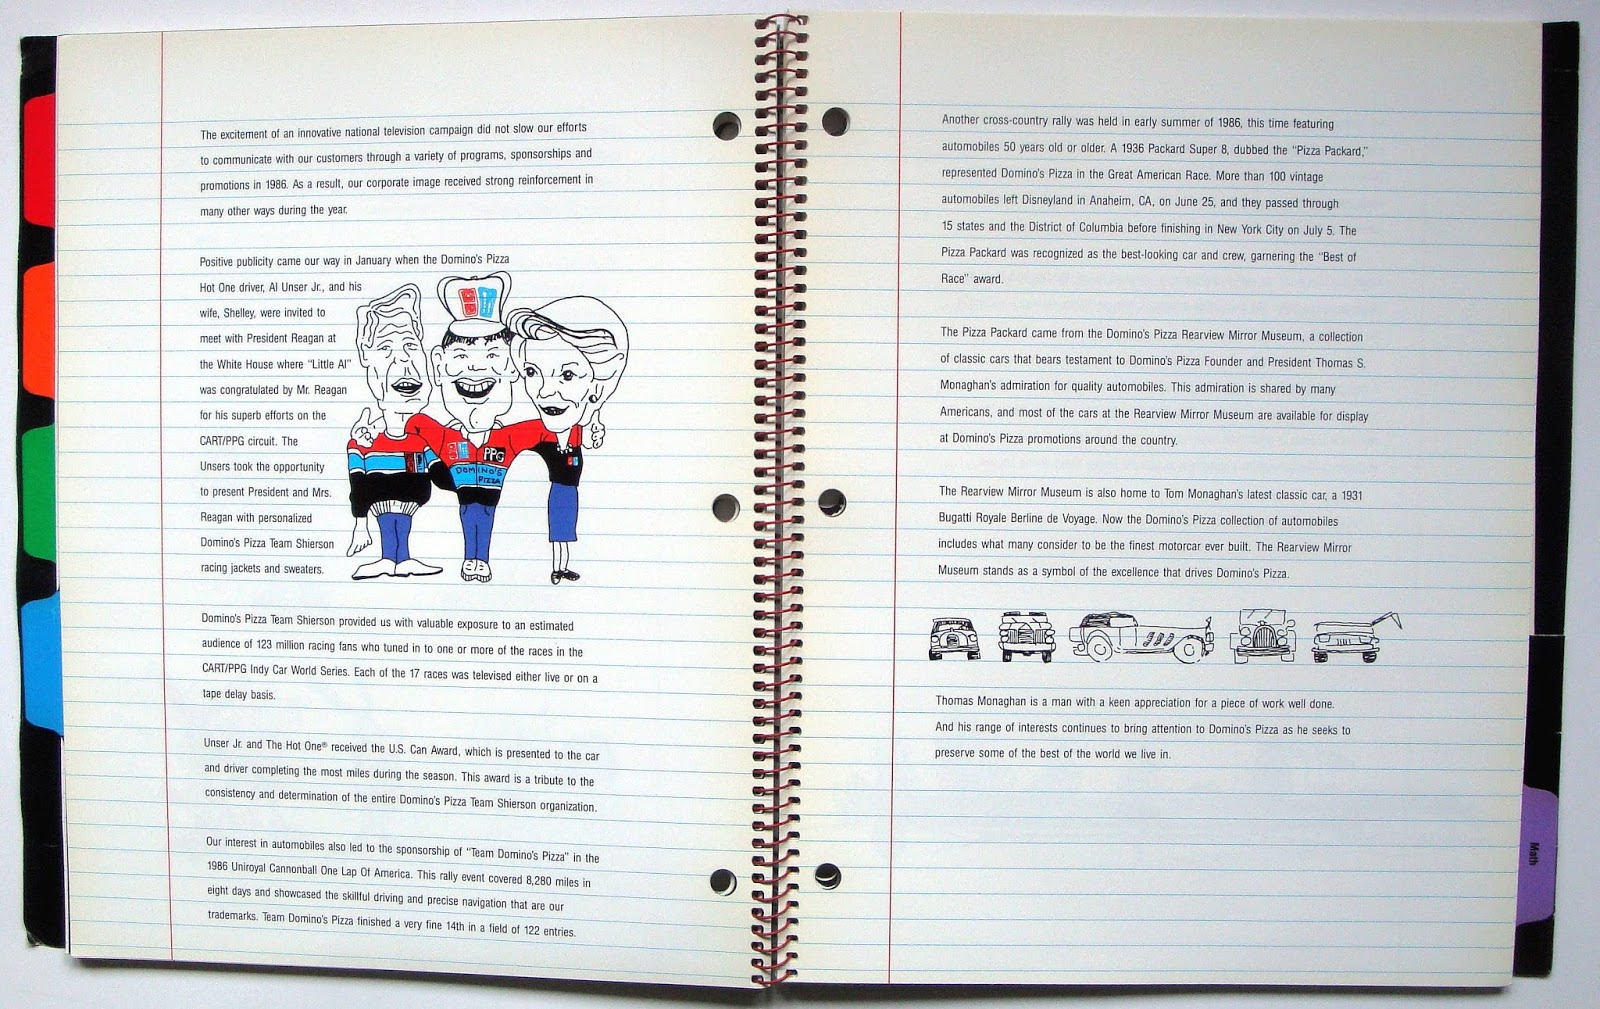 The excitement of an innovative national television campaign did not slow our efforts
to communicate with our customers through a variety of programs, sponsorships and
promotions in 1986. As a result, our corporate image received strong reinforcement in
many other ways during the year.
Positive publicity came our way in January when the Domino's Pizza
Hot One driver, Al Unser Jr., and his
wife, Shelley, were invited to
meet with President Reagan at
the White House where “Little Al”
was congratulated by Mr. Reagan
for his superb efforts on the
CART/PPG circuit. The
Unsers took the opportunity
to present President and Mrs.
Reagan with personalized
Domino's Pizza Team Shierson
racing jackets and sweaters.
PPG
DOMINO'S
PIZZA
Domino's Pizza Team Shierson provided us with valuable exposure to an estimated
audience of 123 million racing fans who tuned in to one or more of the races in the
CART/PPG Indy Car World Series. Each of the 17 races was televised either live or on a
tape delay basis.
Unser Jr. and The Hot One® received the U.S. Can Award, which is presented to the car
and driver completing the most miles during the season. This award is a tribute to the
consistency and determination of the entire Domino's Pizza Team Shierson organization.
Our interest in automobiles also led to the sponsorship of “Team Domino's Pizza” in the
1986 Uniroyal Cannonball One Lap Of America. This rally event covered 8,280 miles in
eight days and showcased the skillful driving and precise navigation that are our
trademarks. Team Domino's Pizza finished a very fine 14th in a field of 122 entries.
Another cross-country rally was held in early summer of 1986, this time featuring
automobiles 50 years old or older. A 1936 Packard Super 8, dubbed the “Pizza Packard,”
represented Domino's Pizza in the Great American Race. More than 100 vintage
automobiles left Disneyland in Anaheim, CA, on June 25, and they passed through
15 states and the District of Columbia before finishing in New York City on July 5. The
Pizza Packard was recognized as the best-looking car and crew, garnering the “Best of
Race” award.
The Pizza Packard came from the Domino's Pizza Rearview Mirror Museum, a collection
of classic cars that bears testament to Domino's Pizza Founder and President Thomas S.
Monaghan's admiration for quality automobiles. This admiration is shared by many
Americans, and most of the cars at the Rearview Mirror Museum are available for display
at Domino's Pizza promotions around the country.
The Rearview Mirror Museum is also home to Tom Monaghan's latest classic car, a 1931
Bugatti Royale Berline de Voyage. Now the Domino's Pizza collection of automobiles
includes what many consider to be the finest motorcar ever built. The Rearview Mirror
Museum stands as a symbol of the excellence that drives Domino's Pizza.
Thomas Monaghan is a man with a keen appreciation for a piece of work well done.
And his range of interests continues to bring attention to Domino's Pizza as he seeks to
preserve some of the best of the world we live in.
Math